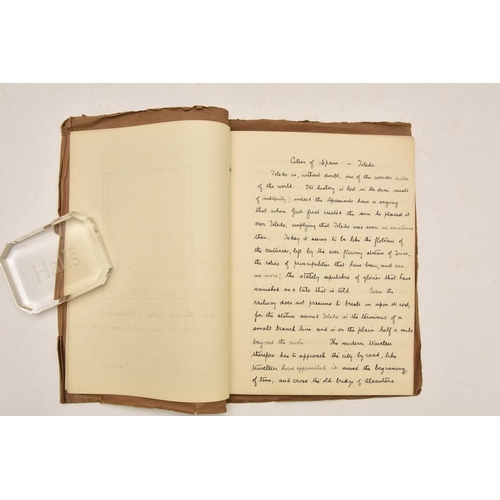 Cities of Spain – Toledo
Toledo is, without doubt, one of the wonder cities
of the world. Its history is lost in the dim recall
of antiquity; indeed the Spaniards have a saying
that when God first created the sun he placed it
over Toledo, implying that Toledo was even in existence
then. Today it seems to be like the flotsam of
the centuries, left by the ever flowing stream of Time;
the relics of principalities that have been, and are
no more; the stately sepulchre of glories that have
vanished as a tale that is told. Even the
railway does not presume to break in upon its rest,
for the station named Toledo is the terminus of a
small branch line and is on the plain half a mile
beyond the river. The modern traveller
therefore has to approach the city by road, like
travellers have approached it since the beginning
of time, and cross the old bridge of Alcantara